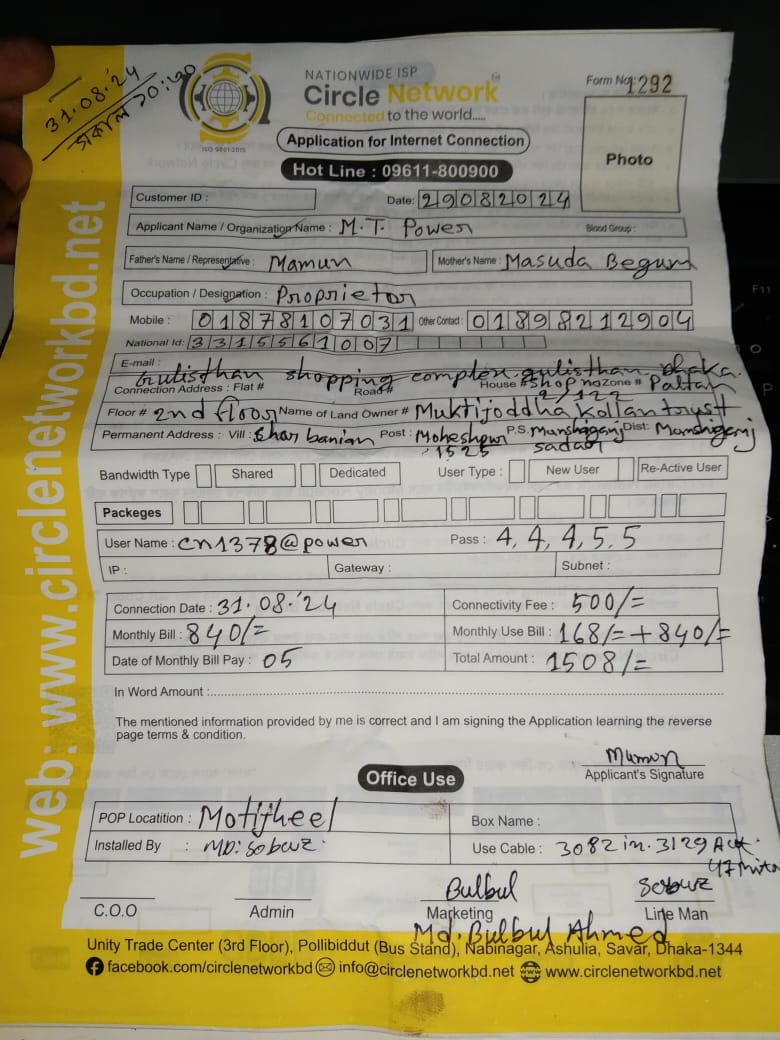 31.08.'24
সকাল ১০:২০
NATIONWIDE ISP
Circle Network
Connected to the world.....
ISO 9001:2015
Form No. 1292
Application for Internet Connection
Hot Line : 09611-800900
Photo
Customer ID :
Date: 29082024
Applicant Name / Organization Name : M.T. Power
Blood Group :
Father's Name / Representative : Mamun
Mother's Name : Masuda Begum
Occupation / Designation : Proprietor
Mobile : 01878107031 Other Contact : 01898212904
National Id: 3315561007
E-mail :
Gulisthan shopping complex. gulisthan. Dhaka.
Connection Address : Flat # Road# House # shop no Zone # Paltan
2/122
Floor # 2nd floor Name of Land Owner # Muktijoddha Kollan trust
Permanent Address : Vill : Char banian Post : Moheshpur P.S. Munshiganj Dist: Munshiganj
1525 sadar
Bandwidth Type Shared Dedicated User Type : New User Re-Active User
Packeges
User Name : cn1378@power Pass : 4, 4, 4, 5, 5
IP : Gateway : Subnet :
Connection Date : 31.08.'24 Connectivity Fee : 500/=
Monthly Bill : 840/= Monthly Use Bill : 168/= + 840/=
Date of Monthly Bill Pay : 05 Total Amount : 1508/=
In Word Amount :
The mentioned information provided by me is correct and I am signing the Application learning the reverse
page terms & condition.
Mumun
Applicant's Signature
Office Use
POP Locatition : Motijheel Box Name :
Installed By : MD: Sobuz. Use Cable : 3082 in. 3129 Act.
Bulbul Sobuz
C.O.O Admin Marketing Line Man
Md. Bulbul Ahmed
Unity Trade Center (3rd Floor), Pollibiddut (Bus Stand), Nabinagar, Ashulia, Savar, Dhaka-1344
facebook.com/circlenetworkbd info@circlenetworkbd.net www.circlenetworkbd.net
web: www.circlenetworkbd.net
F11